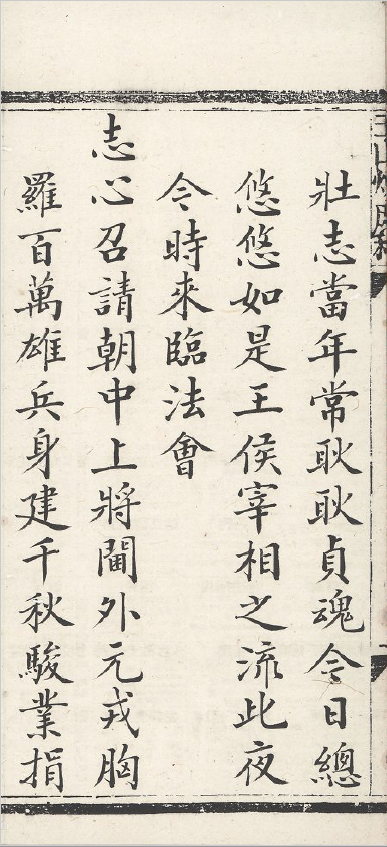 壯志當年常耿耿貞魂今日總
悠悠如是王侯宰相之流此夜
今時來臨法會
志心召請朝中上將閫外元戎胸
羅百萬雄兵身建千秋駿業捐